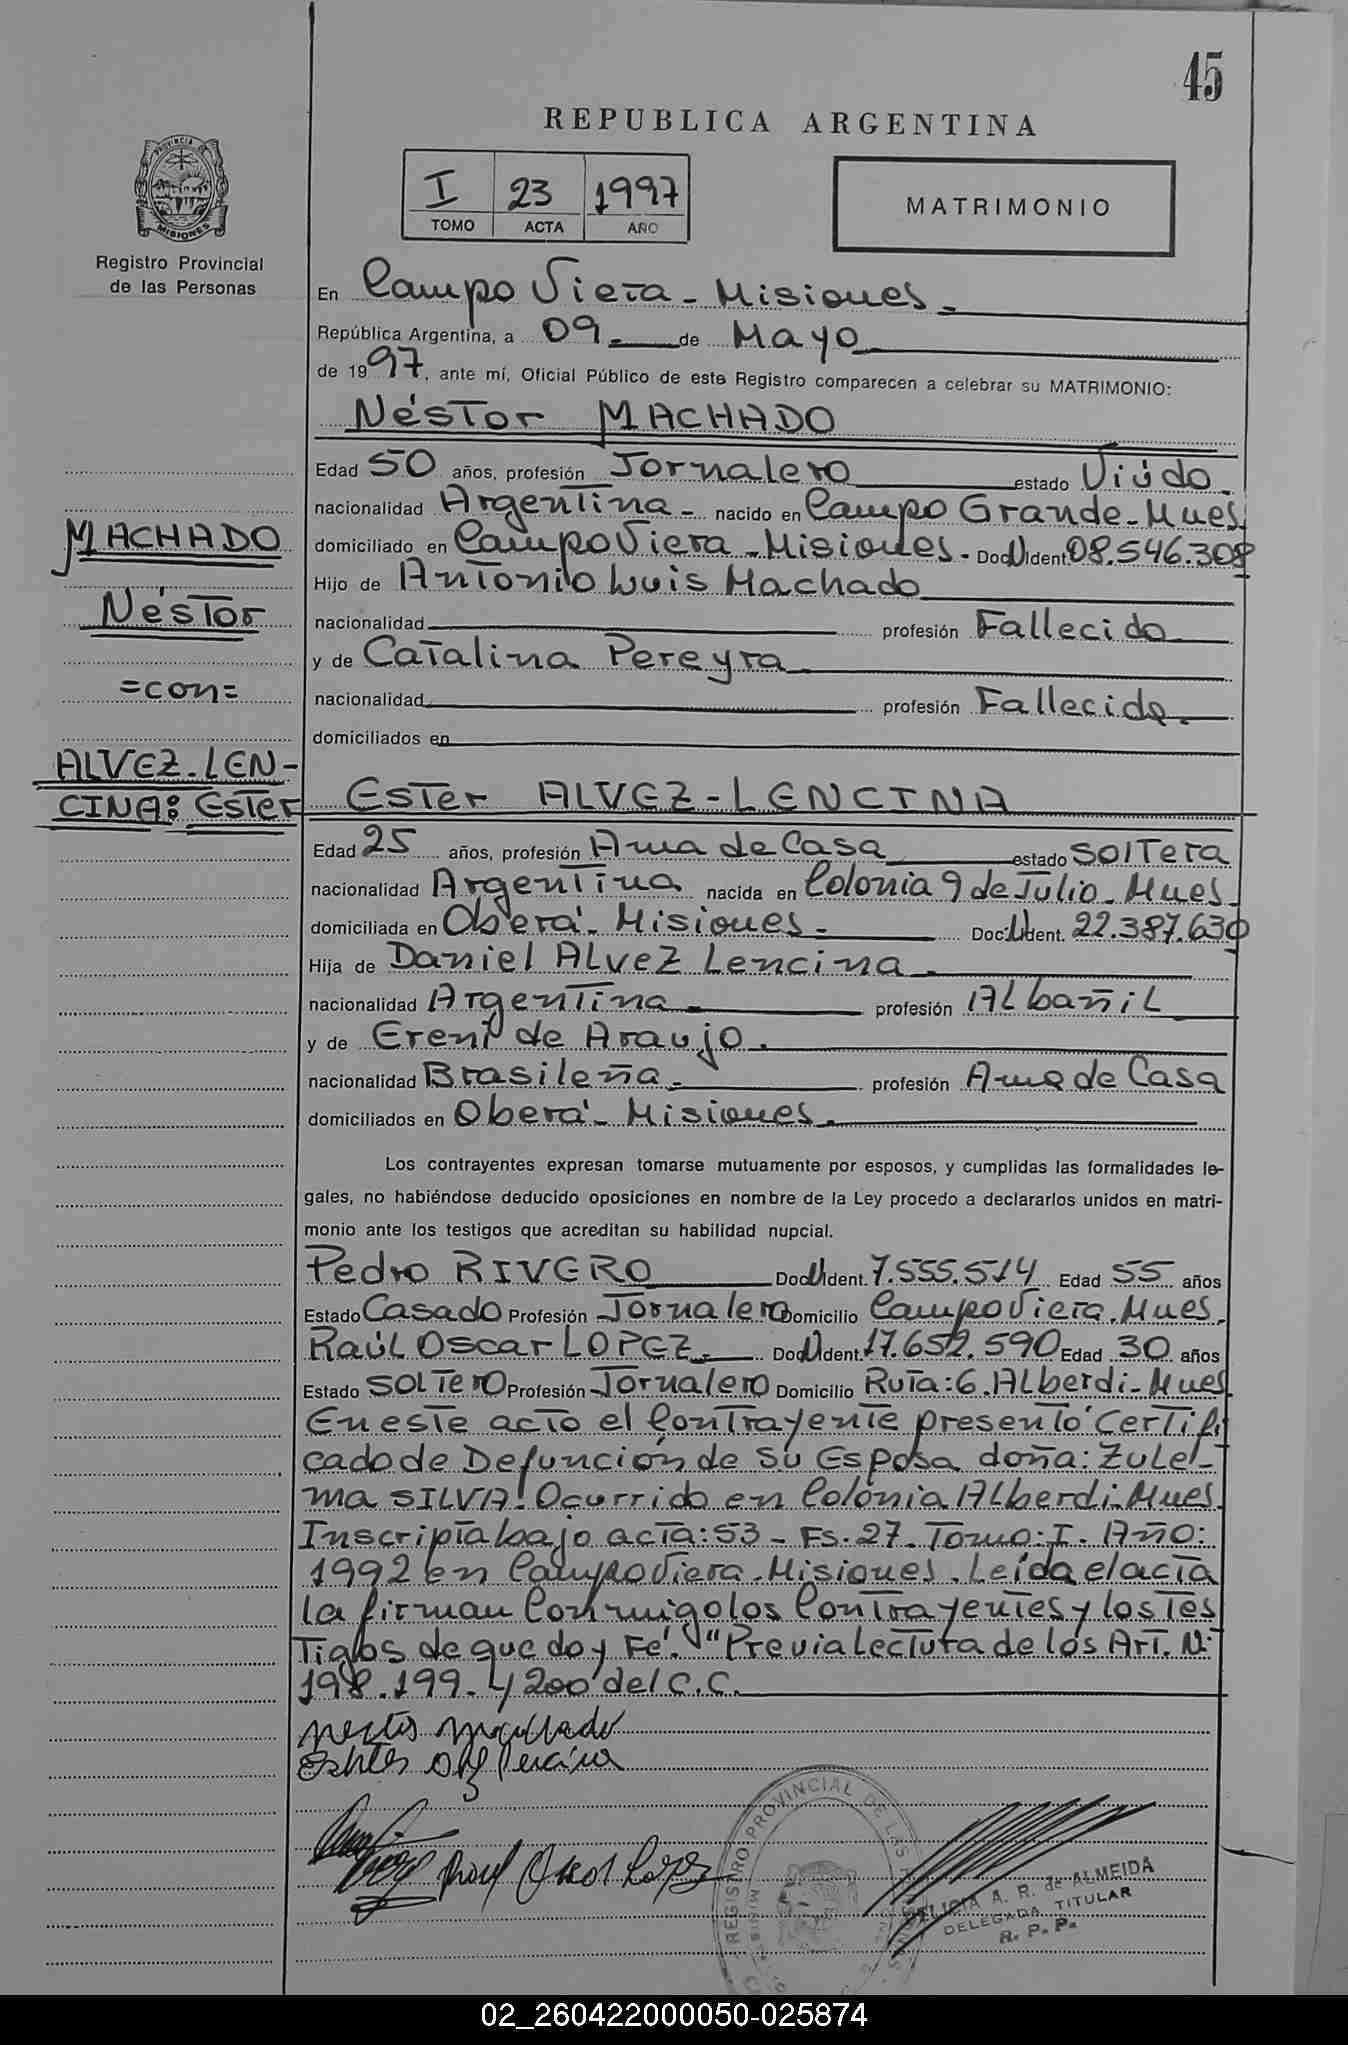 45
REPUBLICA ARGENTINA
I 23 1997
TOMO ACTA AÑO
MATRIMONIO
PROVINCIA DE
MISIONES
Registro Provincial
de las Personas
En Campo Viera - Misiones.-
República Argentina, a 09 de Mayo
de 1997, ante mí, Oficial Público de este Registro comparecen a celebrar su MATRIMONIO:
Néstor MACHADO
Edad 50 años, profesión Jornalero estado Viúdo.
nacionalidad Argentina- nacido en Campo Grande-Mnes.
domiciliado en Campo Viera-Misiones- Doc. N Ident. 08.546.308
Hijo de Antonio Luis Machado
nacionalidad profesión Fallecido
y de Catalina Pereyra
nacionalidad profesión Fallecida.
domiciliados en
MACHADO
Néstor
=con=
ALVEZ-LEN-
CINA: Ester
Ester ALVEZ-LENCINA
Edad 25 años, profesión Ama de Casa estado Soltera
nacionalidad Argentina nacida en Colonia 9 de Julio-Mnes-
domiciliada en Oberá- Misiones- Doc. N Ident. 22.387.630
Hija de Daniel Alvez Lencina.
nacionalidad Argentina profesión Albañil
y de Ereni de Araujo.
nacionalidad Brasileña- profesión Ama de Casa
domiciliados en Oberá- Misiones.
Los contrayentes expresan tomarse mutuamente por esposos, y cumplidas las formalidades le-
gales, no habiéndose deducido oposiciones en nombre de la Ley procedo a declararlos unidos en matri-
monio ante los testigos que acreditan su habilidad nupcial.
Pedro RIVERO Doc. N Ident. 7.555.514 Edad 55 años
Estado Casado Profesión Jornalero Domicilio Campo Viera. Mnes.
Raúl Oscar LOPEZ. Doc. N Ident. 17.652.590 Edad 30 años
Estado Soltero Profesión Jornalero Domicilio Ruta: 6. Alberdi-Mnes
En este acto el Contrayente presentó Certifi
cado de Defunción de Su Esposa doña: Zule-
ma SILVA! Ocurrido en Colónia Alberdi-Mnes.
Inscripta bajo acta: 53 - Fs. 27. Tomo: I. Año:
1992 en Campo Viera-Misiones. Leída el acta
la firman Conmigo los Contrayentes y los Tes
Tigos de que doy Fé. "Previa lectura de los Art. N:
198.199. y 200 del C.C.
Raul Oscar Lopez
REGISTRO PROVINCIAL DE LAS
A. R. de ALMEIDA
DELEGADA TITULAR
R. P. P.
02_260422000050-025874